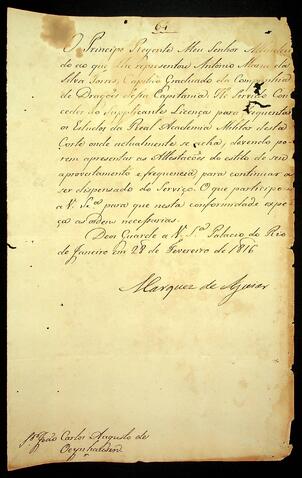 64
O Principe Regente Meu Senhor Attendendo
ao que Lhe representou Antonio Maria da
Silva Torres, Capitão Graduado da Companhia
de Dragões desta Capitania: He Servido Con-
ceder ao Supplicante Licença para frequentar
os Estudos da Real Academia Militar desta
Corte onde actualmente se acha, devendo po-
rem apresentar as Attestações do estilo de seu
aproveitamento e frequencia para continuar a
ser dispensado do Serviço. O que participo
a V. S.ª para que nesta conformidade expe-
ça as ordens necessarias.
Deos Guarde a V. S.ª Palacio do Rio
de Janeiro em 28 de Fevereiro de 1816
Marquez de Aguiar
Sr. João Carlos Augusto de
Oeynhausen.